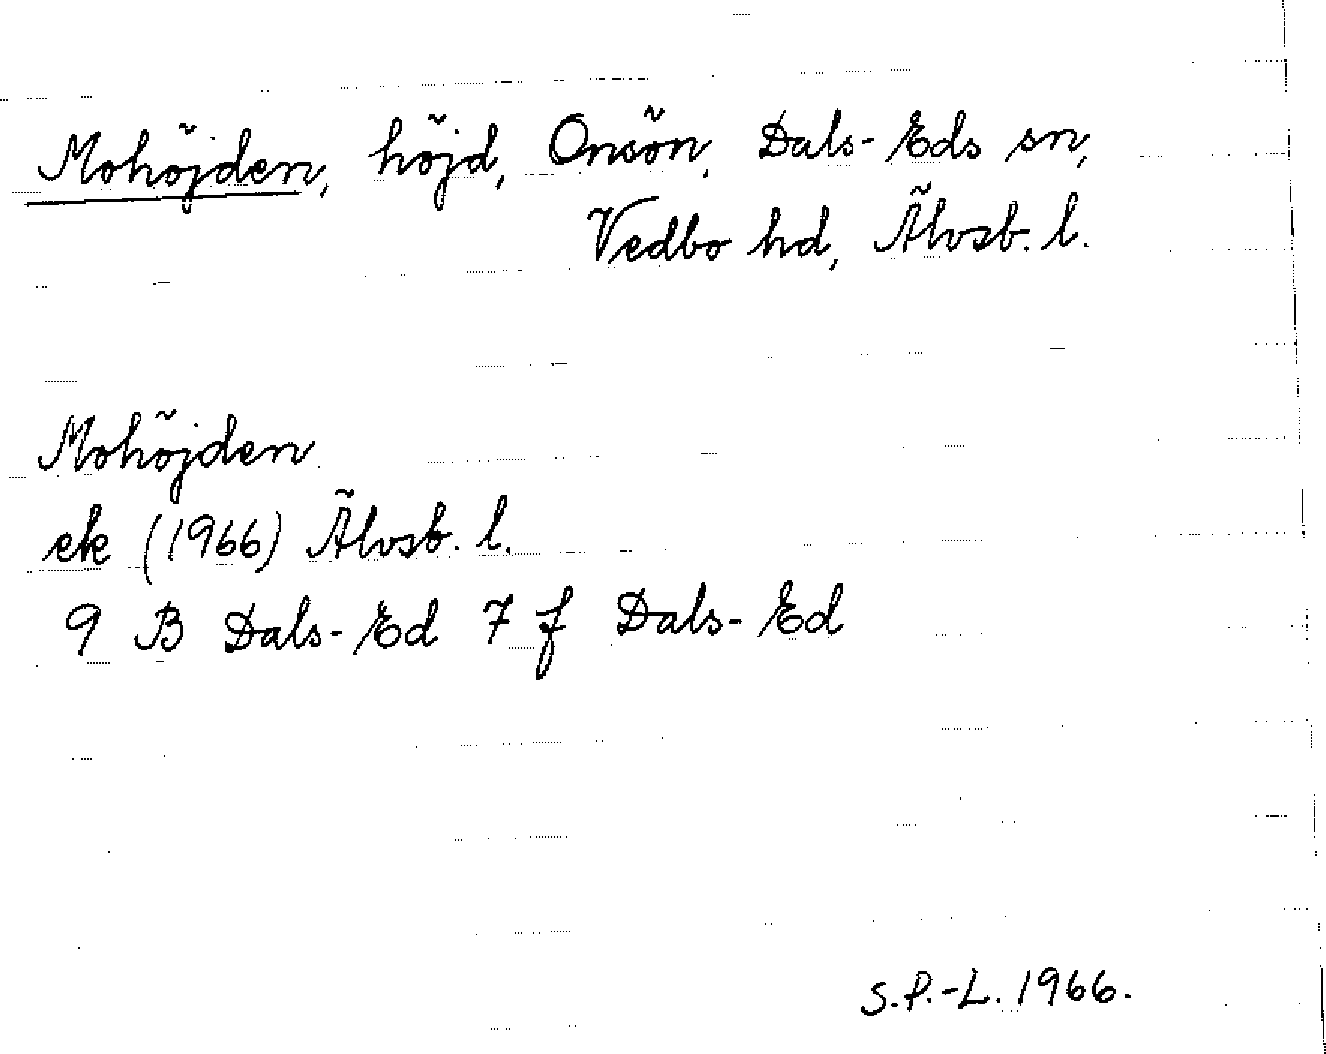 Mohöjden, höjd, Onsön, Dals-Eds sn,
Vedbo hd, Älvsb. l.
Mohöjden
ek (1966) Älvsb. l.
9 B Dals-Ed 7 f Dals-Ed
S.P.-L. 1966.